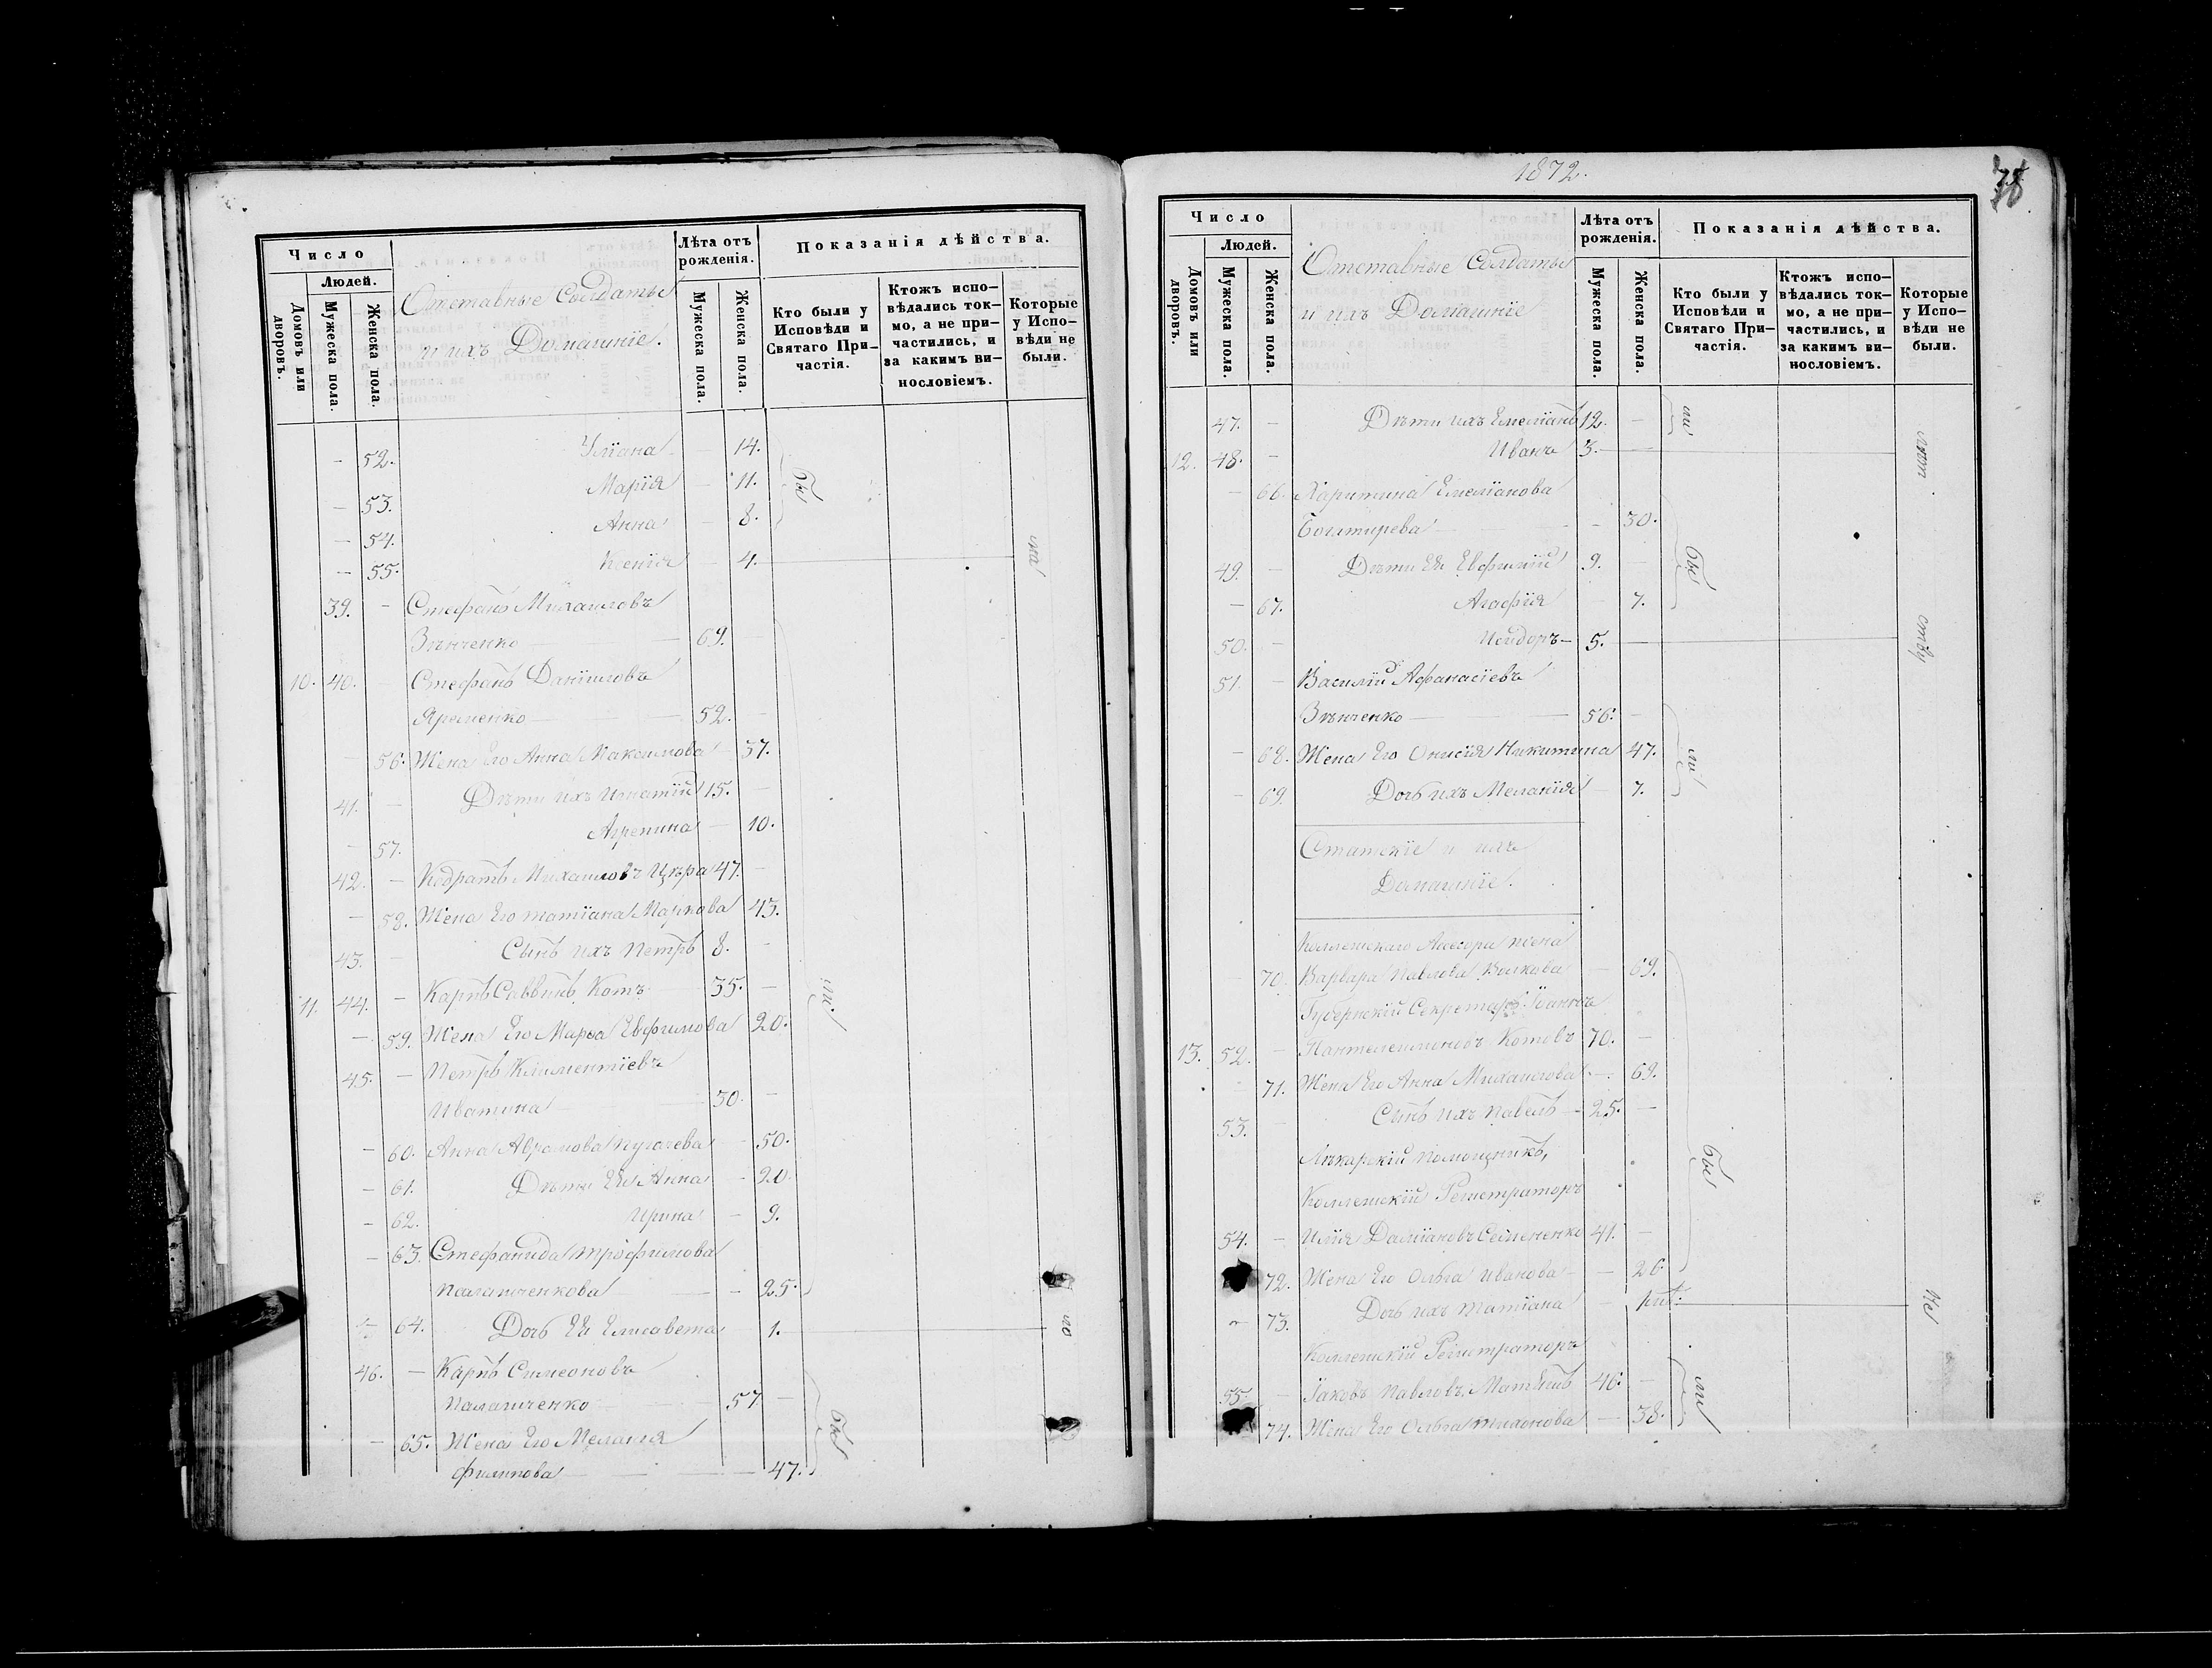 Число
Людей.
Домовъ или дворовъ.
Мужеска пола.
Женска пола.
Отставные Солдаты
и ихъ Домашніе.
Лѣта отъ рожденія.
Мужеска пола.
Женска пола.
Показанія дѣйства.
Кто были у Исповѣди и Святаго При-
частія.
Ктожъ испо-
вѣдались ток-
мо, а не при-
частились, и
за какимъ ви-
нословіемъ.
Которые
у Испо-
вѣди не
были.
- 52. Уліана - 14.
- 53. Марія - 11.
бы
- 54. Анна - 8.
- 55. Ксенія - 4.
39. - Стефанъ Михаиловъ
Зѣнченко 69. -
10. 40. - Стефанъ Даніиловъ
Яременко 52. -
- 56. Жена Его Анна Максимова - 37.
41. - Дѣти ихъ Игнатій 15. -
- 57. Агрепина - 10.
42. - Кодратъ Михаиловъ Цыра 47. -
- 58. Жена Его Татіана Маркова 43.
43. - Сынъ ихъ Петръ 8. -
11. 44. - Карпъ Саввинъ Котъ 35. -
ли.
- 59. Жена Его Марѳа Евфимова 20.
45. - Петръ Климентіевъ
30. -
- 60. Анна Аврамова Пугачева - 50.
- 61. Дѣти Ея Анна - 20.
- 62. Ирина - 9.
- 63. Стефанида Трофимова
Палагиченкова - 25.
- 64. Дочь Ея Елисавета 1.
46. - Карпъ Симеоновъ
Палагиченко 57. -
бы
- 65. Жена Его Меланія
Филипова - 47.
1872.
78
Число
Людей.
Домовъ или дворовъ.
Мужеска пола.
Женска пола.
Отставные Солдаты
и ихъ Домашніе
Лѣта отъ
рожденія.
Мужеска пола.
Женска пола.
Показанія дѣйства.
Кто были у
Исповѣди и
Святаго При-
частія.
Ктожъ испо-
вѣдались ток-
мо, а не при-
частились, и
за какимъ ви-
нословіемъ.
Которые
у Испо-
вѣди не
были.
47. - Дѣти ихъ Емеліанъ 12. -
ли
12. 48. - Иванъ 3.
- 66. Харитина Емеліанова
Богатирева - 30.
49. - Дѣти Ея Евфимій 9. -
бы
- 67. Агафія - 7.
50. - Исидоръ 5.
51. - Василій Афанасіевъ
Зѣнченко 56. -
- 68. Жена Его Онисія Никитина 47.
ли
- 69. Дочь ихъ Меланія - 7.
Статскіе и ихъ
Домашніе.
Коллежскаго Асесора жена
- 70. Варвара Павлова Волкова - 69.
Губернскій Секретарь Іоаннъ
13. 52. - Пантелеимоновъ Котовъ 70. -
- 71. Жена Его Анна Михаилова - 69.
53. - Сынъ ихъ Павелъ 25. -
Лѣкарскій помощникъ,
бы
Коллежскій Регистраторъ
54. - Илія Даміановъ Семененко 41. -
72. Жена Его Ольга Иванова - 26.
- 73. Дочь ихъ Татіана -
не
Коллежскій Регистраторъ
55. - Іаковъ Павловъ 46. -
ли
74. Жена Его Ольга Тихонова - 38.